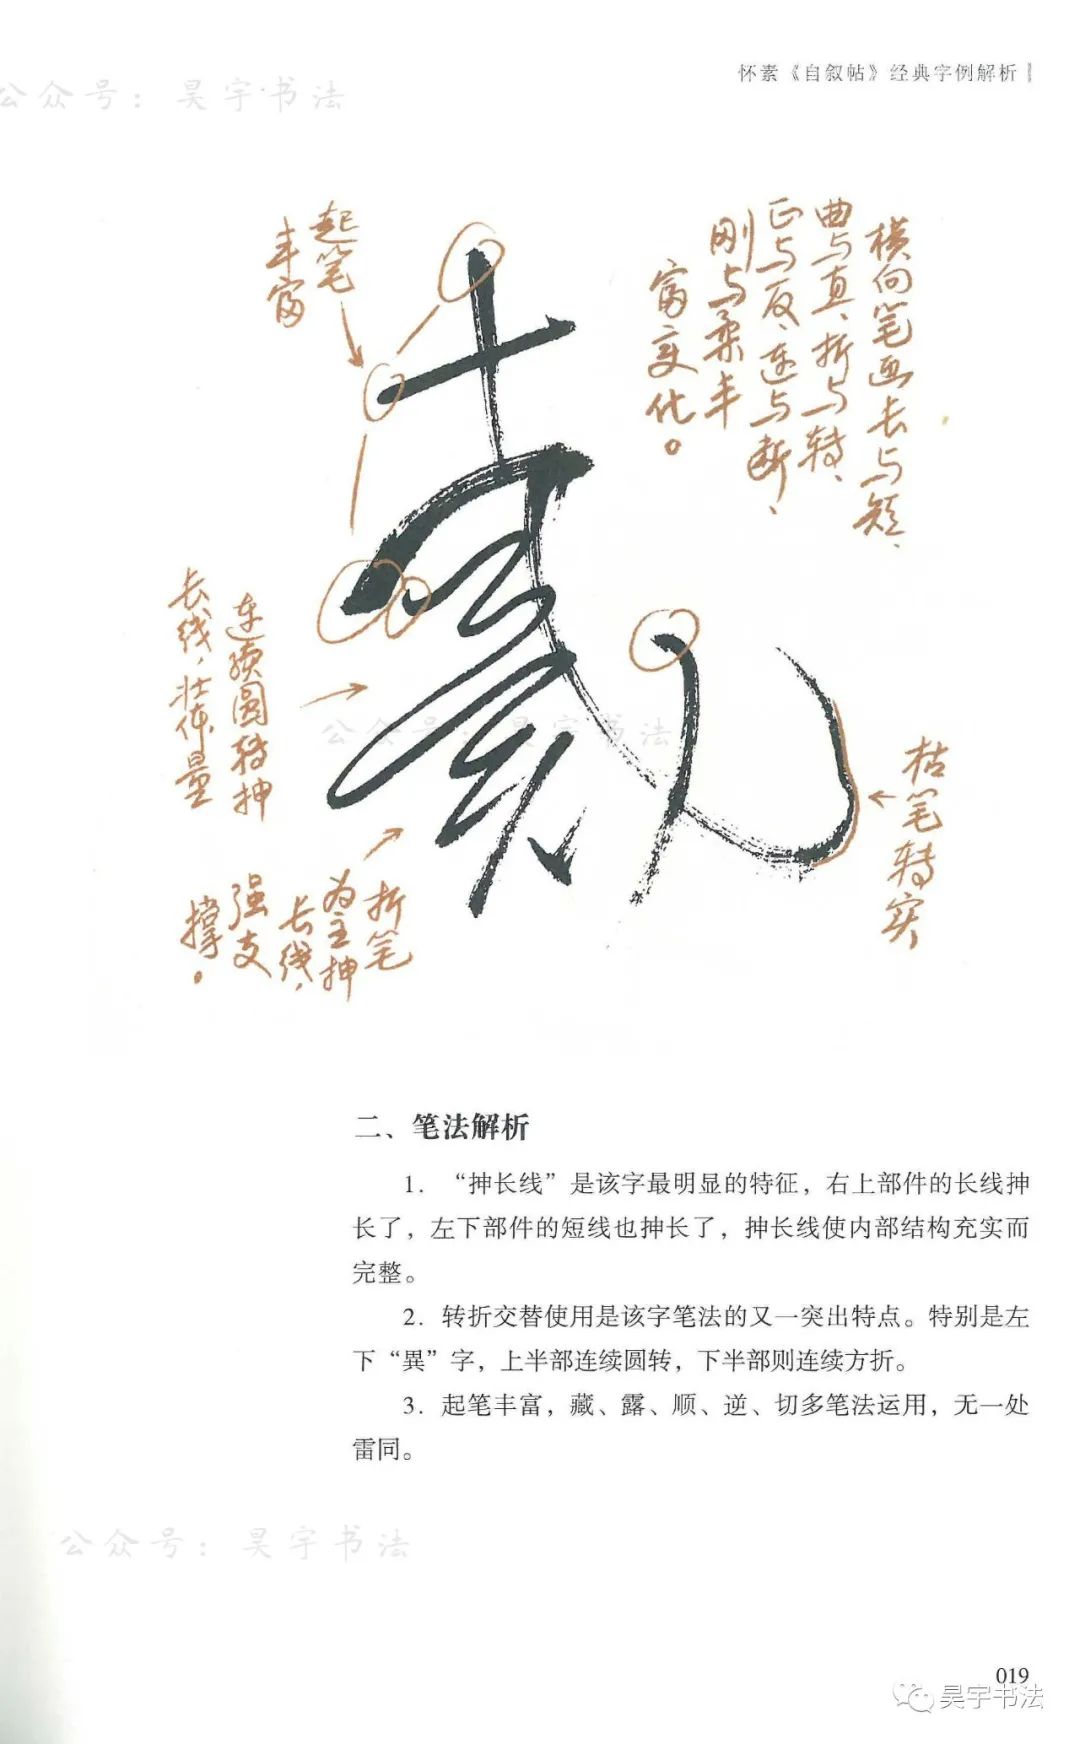 怀素《自叙帖》经典字例解析
公众号：昊宇书法
横向笔画长与短、
曲与直、折与转、
正与反、连与断、
刚与柔丰
富变化。
起笔
丰富
连续圆转抻
长线，壮体量
公众号：昊宇书法
枯笔转实
折笔
为主抻
长线，
强支
撑。
二、笔法解析
1．“抻长线”是该字最明显的特征，右上部件的长线抻
长了，左下部件的短线也抻长了，抻长线使内部结构充实而
完整。
2．转折交替使用是该字笔法的又一突出特点。特别是左
下“異”字，上半部连续圆转，下半部则连续方折。
3．起笔丰富，藏、露、顺、逆、切多笔法运用，无一处
雷同。
公众号：昊宇书法
019
昊宇书法